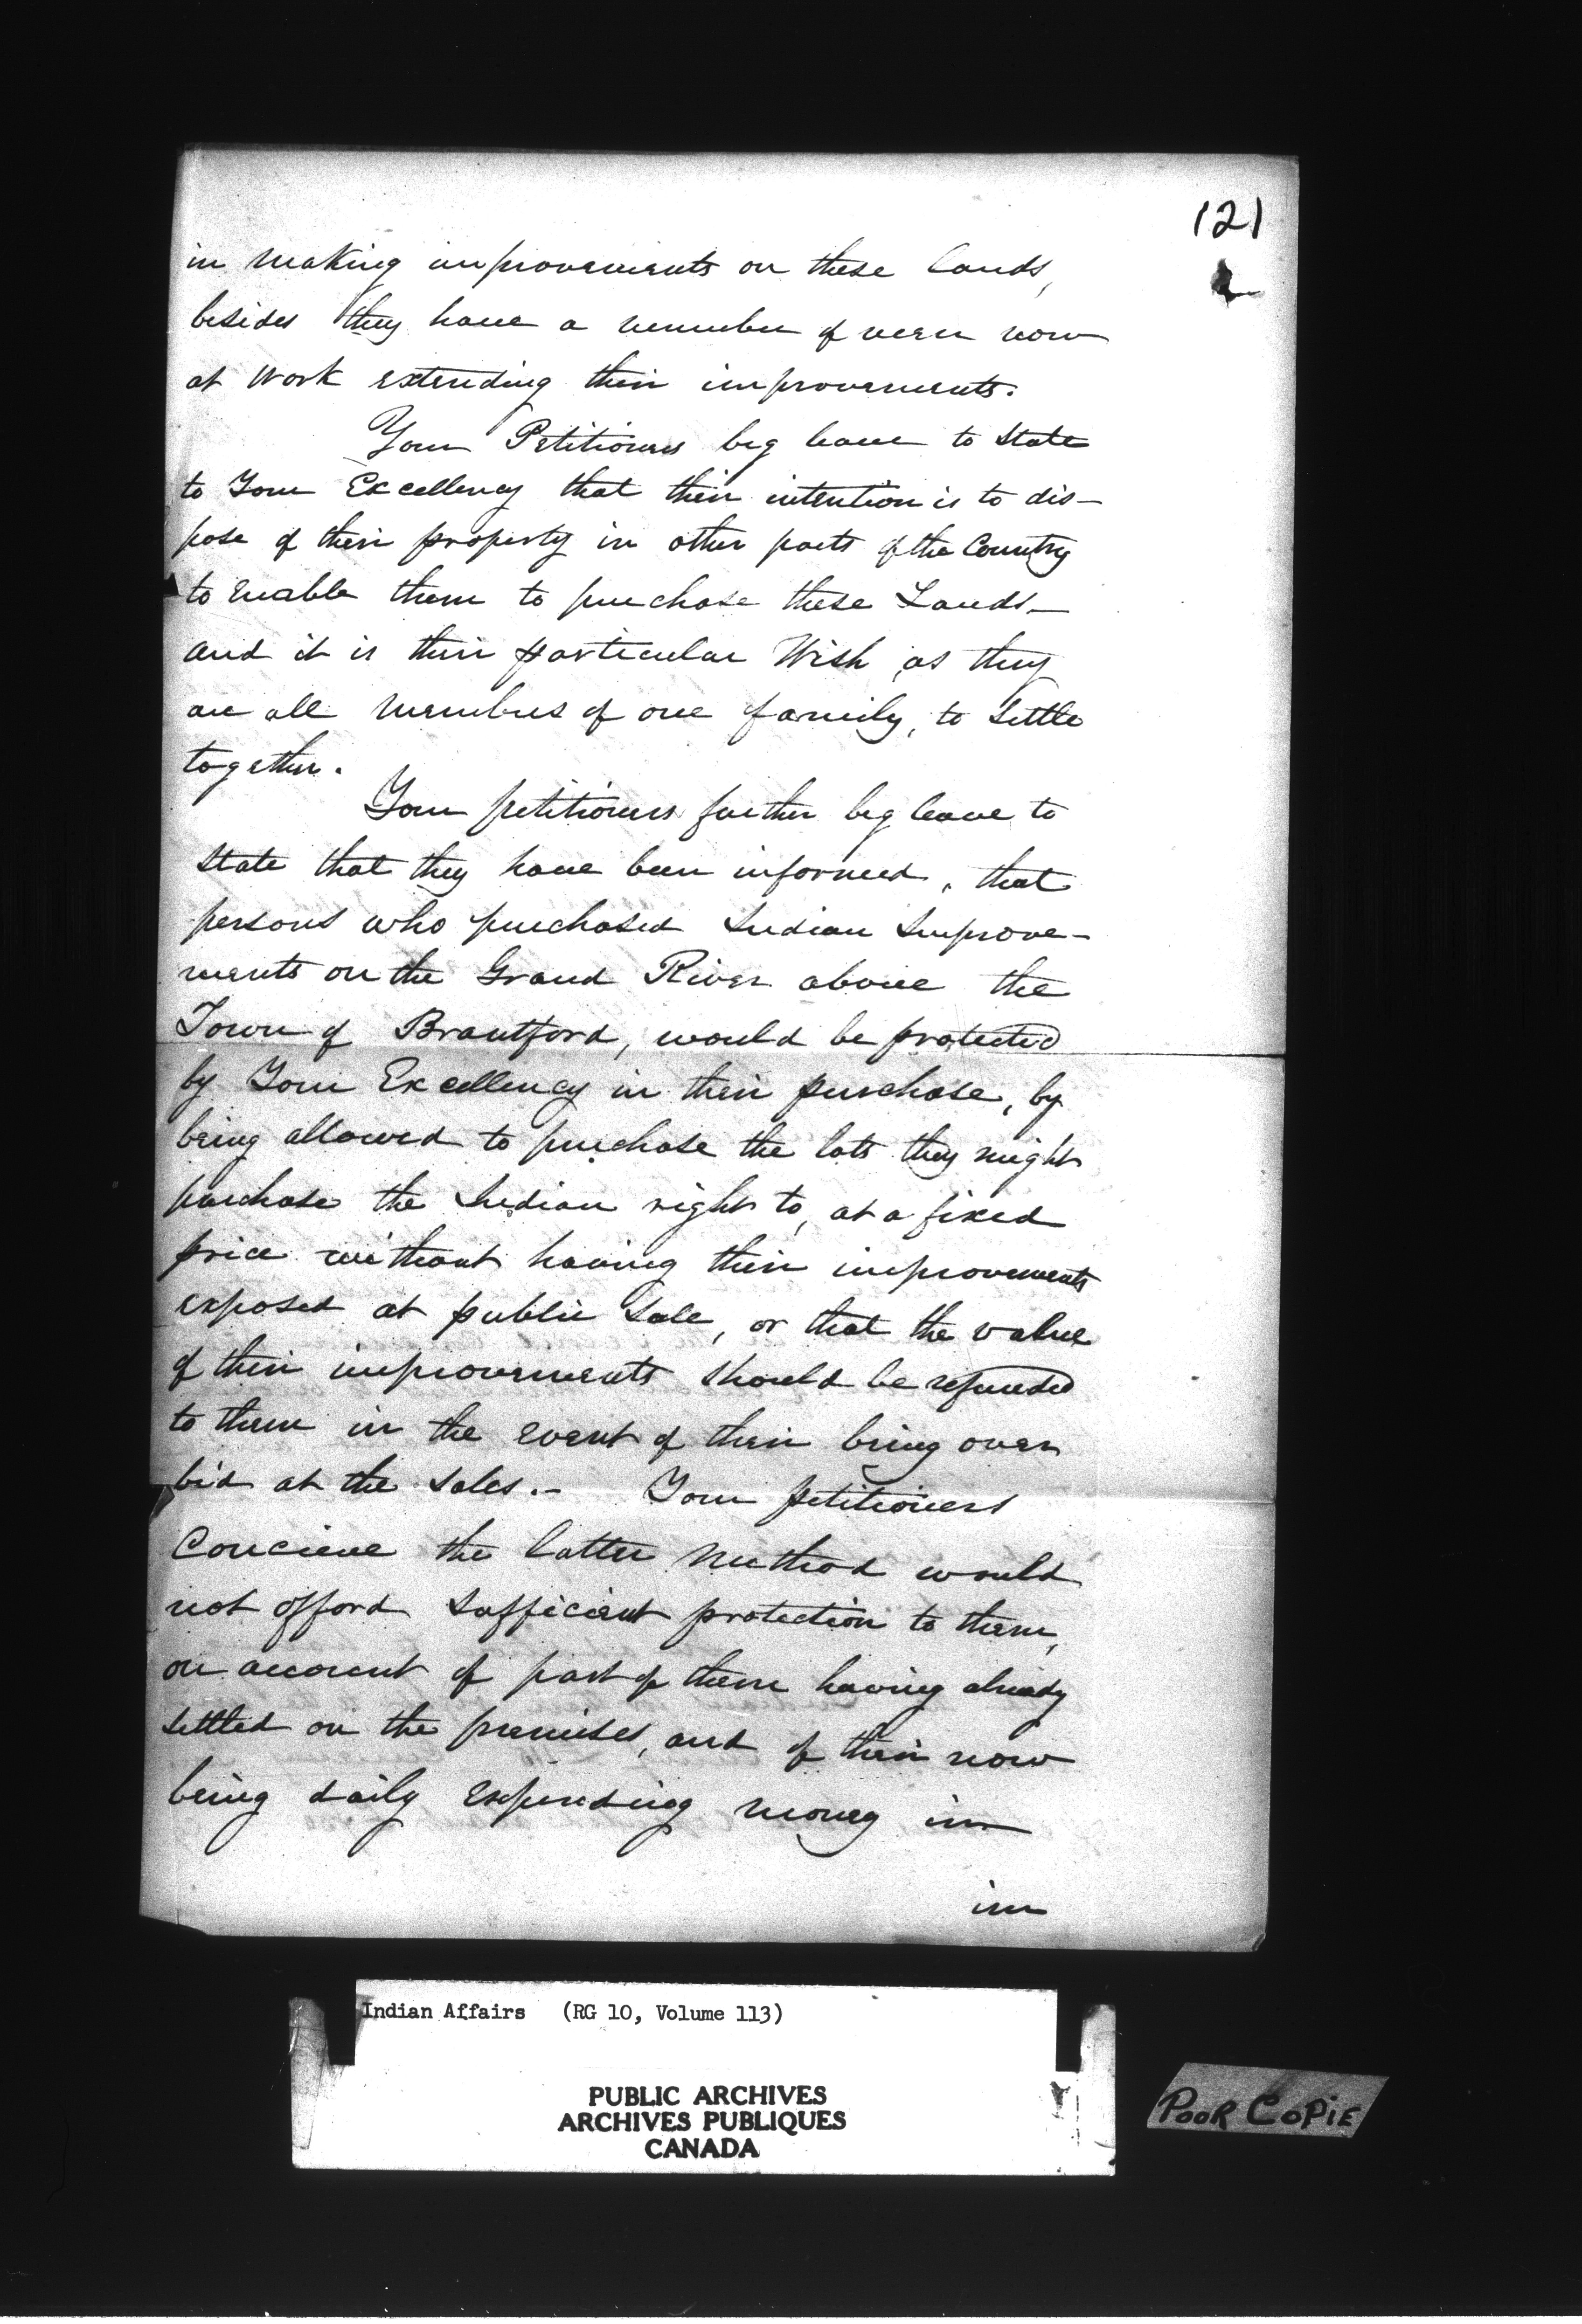 121
in making improvements on these lands,
besides they have a number of men now
at work extending their improvements.
Your Petitioners beg leave to State
to Your Excellency that their intention is to dis-
pose of their property in other parts of the Country
to enable them to purchase these Lands—
and it is their particular Wish, as they
are all members of one family, to Settle
together.
Your petitioners further beg leave to
State that they have been informed, that
persons who purchased Indian Improve-
ments on the Grand River above the
Town of Brantford, would be protected
by Your Excellency in their purchase, by
being allowed to purchase the lots they might
purchase the Indian right to, at a fixed
price without having their improvements
exposed at public Sale, or that the value
of their improvements should be refunded
to them in the event of their being over
bid at the Sales.— Your petitioners
Concieve the latter method would
not afford Sufficient protection to them,
on account of part of them having already
Settled on the premises, and of their now
being daily expending money in
im
Indian Affairs (RG 10, Volume 113)
PUBLIC ARCHIVES
ARCHIVES PUBLIQUES
CANADA
POOR COPIE